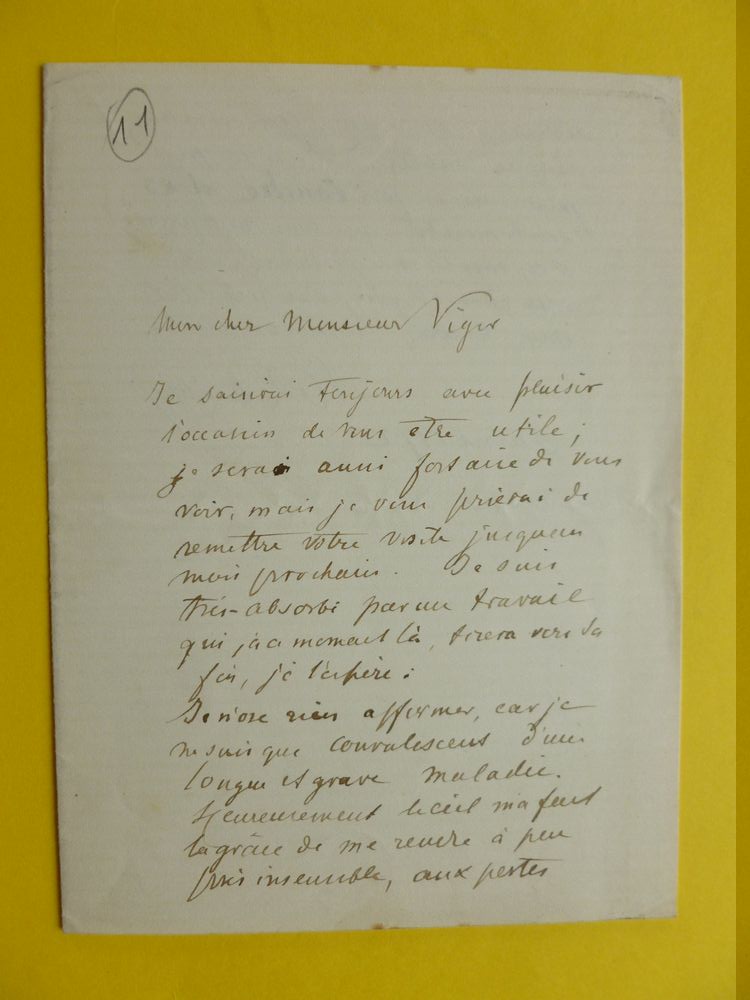 11
Mon cher Monsieur Viger
Je saisirai toujours avec plaisir
l'occasion de vous etre utile;
je serai aussi fort aise de vous
voir, mais je vous prierai de
remettre votre visite jusqu'au
mois prochain. Je suis
très-absorbé par un travail
qui, à ce moment là, tirera vers sa
fin, je l'espère;
Je n'ose rien affirmer, car je
ne suis que convalescent d'une
longue et grave maladie.
Heureusement le ciel m'a fait
la grâce de me rendre à peu
près insensible, aux pertes